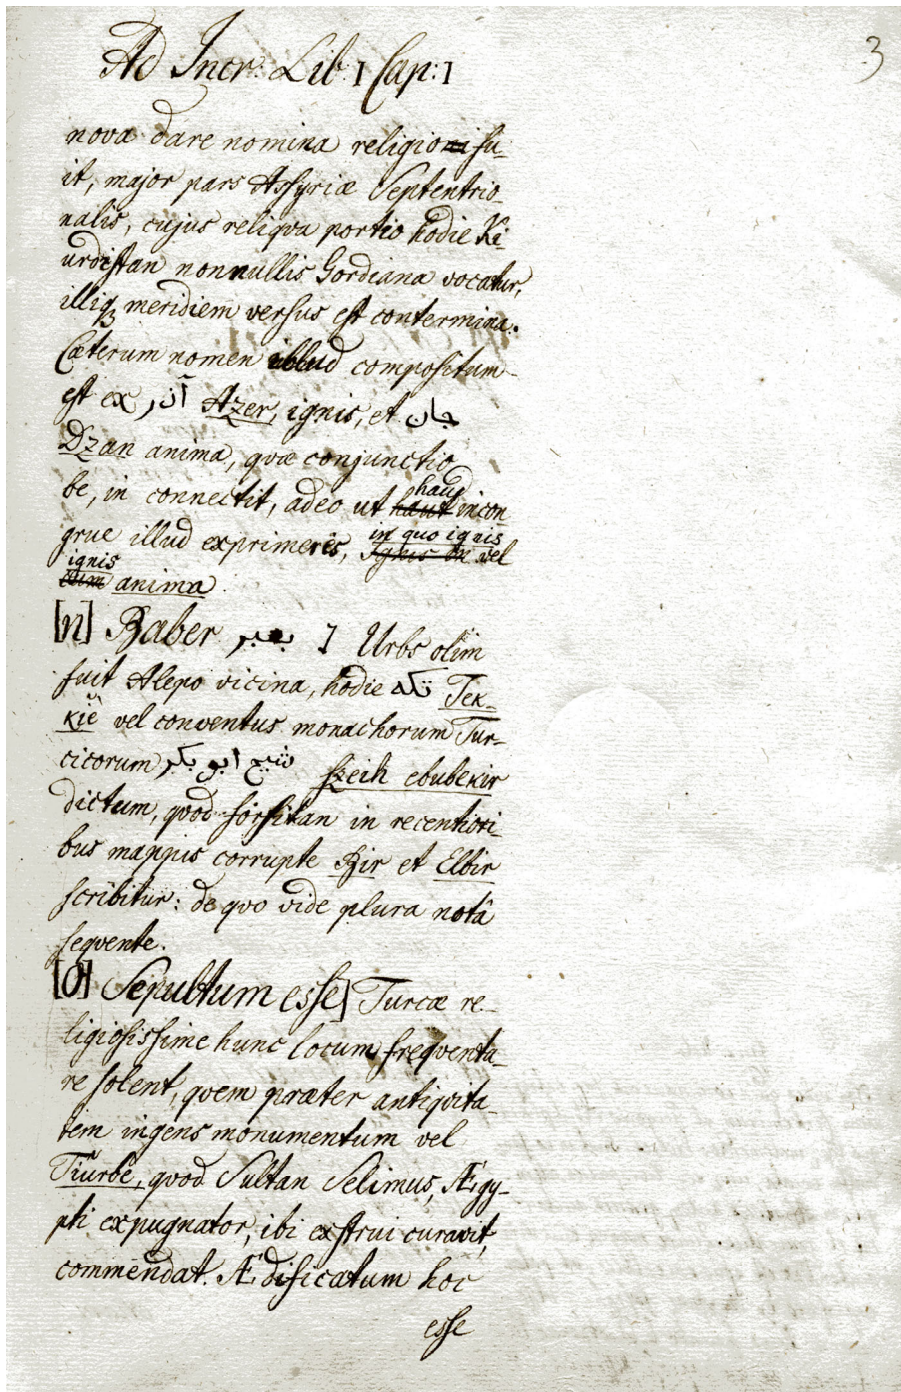 Ad Incr: Lib: I Cap: I
3
nova dare nomina religio fu-
it, major pars Assyriæ Septentrio-
nalis, cujus reliqva portio hodie Ki-
urdistan nonnullis Gordiana vocatur,
illiq3 meridiem versus est contermina.
Cæterum nomen illud compositum
est ex آذر Azer, ignis, et جان
Dzan anima, qvæ conjunctio
be, in connectit, adeo ut haut haud incon-
grue illud exprimeres, ignis in in quo ignis vel
ignis anima
[n] Baber ] Urbs olim
fuit Alepo vicina, hodie تكه Tek-
kiĕ vel conventus monachorum Tur-
cicorum شيخ ابو بكر szeih ebubekir
dictum, qvod forsitan in recentiori-
bus mappis corrupte Bir et Elbir
scribitur: de qvo vide plura notâ
seqvente.
[o] Sepultum esse] Turcæ re-
ligiosissime hunc locum freqventa-
re solent, qvem præter antiqvita-
tem ingens monumentum vel
Tiurbĕ, qvod Sultan Selimus, Ægy-
pti expugnator, ibi exstrui curavit,
commendat. Ædificatum hoc
esse